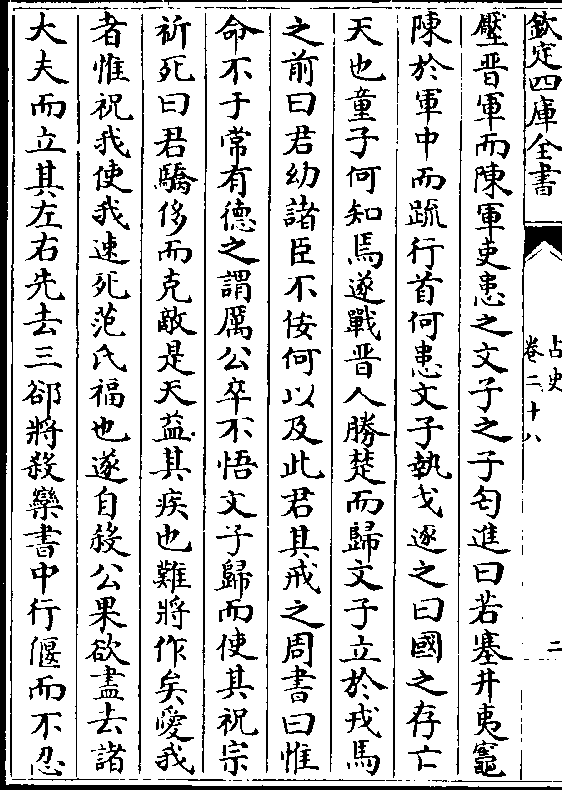 欽定四庫全書
古史
卷二十八
二
壓晉軍而陳軍吏患之文子之子匄進曰若塞井夷竈
陳於軍中而疏行首何患文子執戈逐之曰國之存亡
天也童子何知焉遂戰晉人勝楚而歸文子立於戎馬
之前曰君幼諸臣不佞何以及此君其戒之周書曰惟
命不于常有德之謂厲公卒不悟文子歸而使其祝宗
祈死曰君驕侈而克敵是天益其疾也難將作矣愛我
者惟祝我使我速死范氏福也遂自殺公果欲盡去諸
大夫而立其左右先去三郤將殺欒書中行偃而不忍